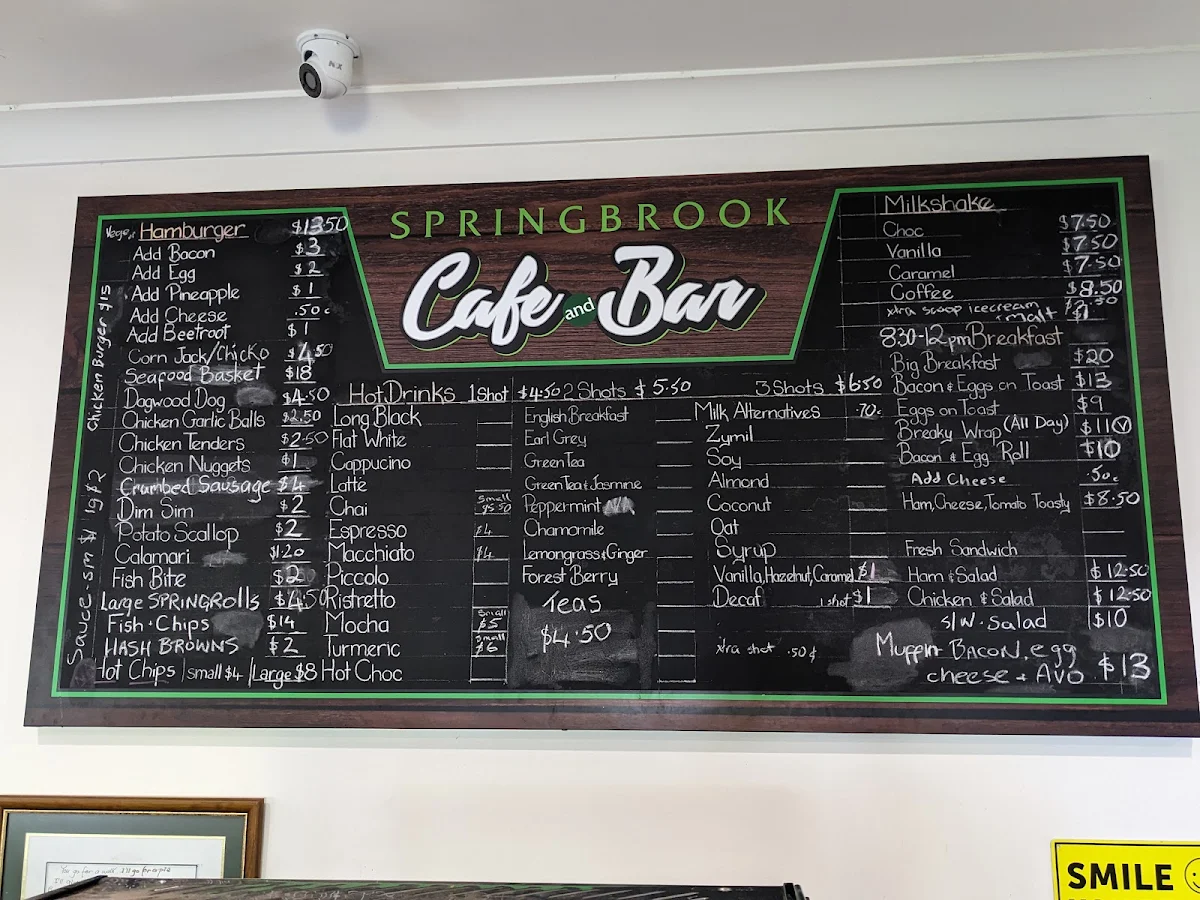 NX
SPRINGBROOK
Cafe and Bar
Vege or Hamburger $13.50
Add Bacon $3
Add Egg $2
Add Pineapple $1
Add Cheese .50c
Add Beetroot $1
Corn Jack/Chicko $4.50
Seafood Basket $18
Dagwood Dog $4.50
Chicken Garlic Balls $2.50
Chicken Tenders $2.50
Chicken Nuggets $1
Crumbed Sausage $4
Dim Sim $2
Potato Scallop $2
Calamari $1.20
Fish Bite $2
Large SPRINGROLLS $4.50
Fish + Chips $14
HASH BROWNS $2
Hot Chips small $4 Large $8
Chicken Burger $15
Sauce - sm $1 lg $2
Hot Drinks 1 Shot $4.50 2 Shots $5.50 3 Shots $6.50
Long Black
Flat White
Cappucino
Latte
Chai small $5.50
Espresso $4
Macchiato $4
Piccolo
Ristretto
Mocha small $5
Turmeric small $6
Hot Choc
English Breakfast
Earl Grey
Green Tea
Green Tea & Jasmine
Peppermint N/A
Chamomile
Lemongrass & Ginger
Forest Berry
Teas
$4.50
Milk Alternatives .70c
Zymil
Soy
Almond
Coconut
Oat
Syrup
Vanilla, Hazelnut, Caramel $1
Decaf 1 shot $1
xtra shot .50¢
Milkshake
Choc $7.50
Vanilla $7.50
Caramel $7.50
Coffee $8.50
xtra scoop icecream $2.50
malt $1
8.30-12pm Breakfast
Big Breakfast $20
Bacon & Eggs on Toast $13
Eggs on Toast $9
Breaky Wrap (All Day) $11
Bacon & Egg Roll $10
Add Cheese .50c
Ham, Cheese, Tomato Toasty $8.50
Fresh Sandwich
Ham & Salad $12.50
Chicken & Salad $12.50
S/W. Salad $10
Muffin BACON, egg
cheese + Avo $13
SMILE